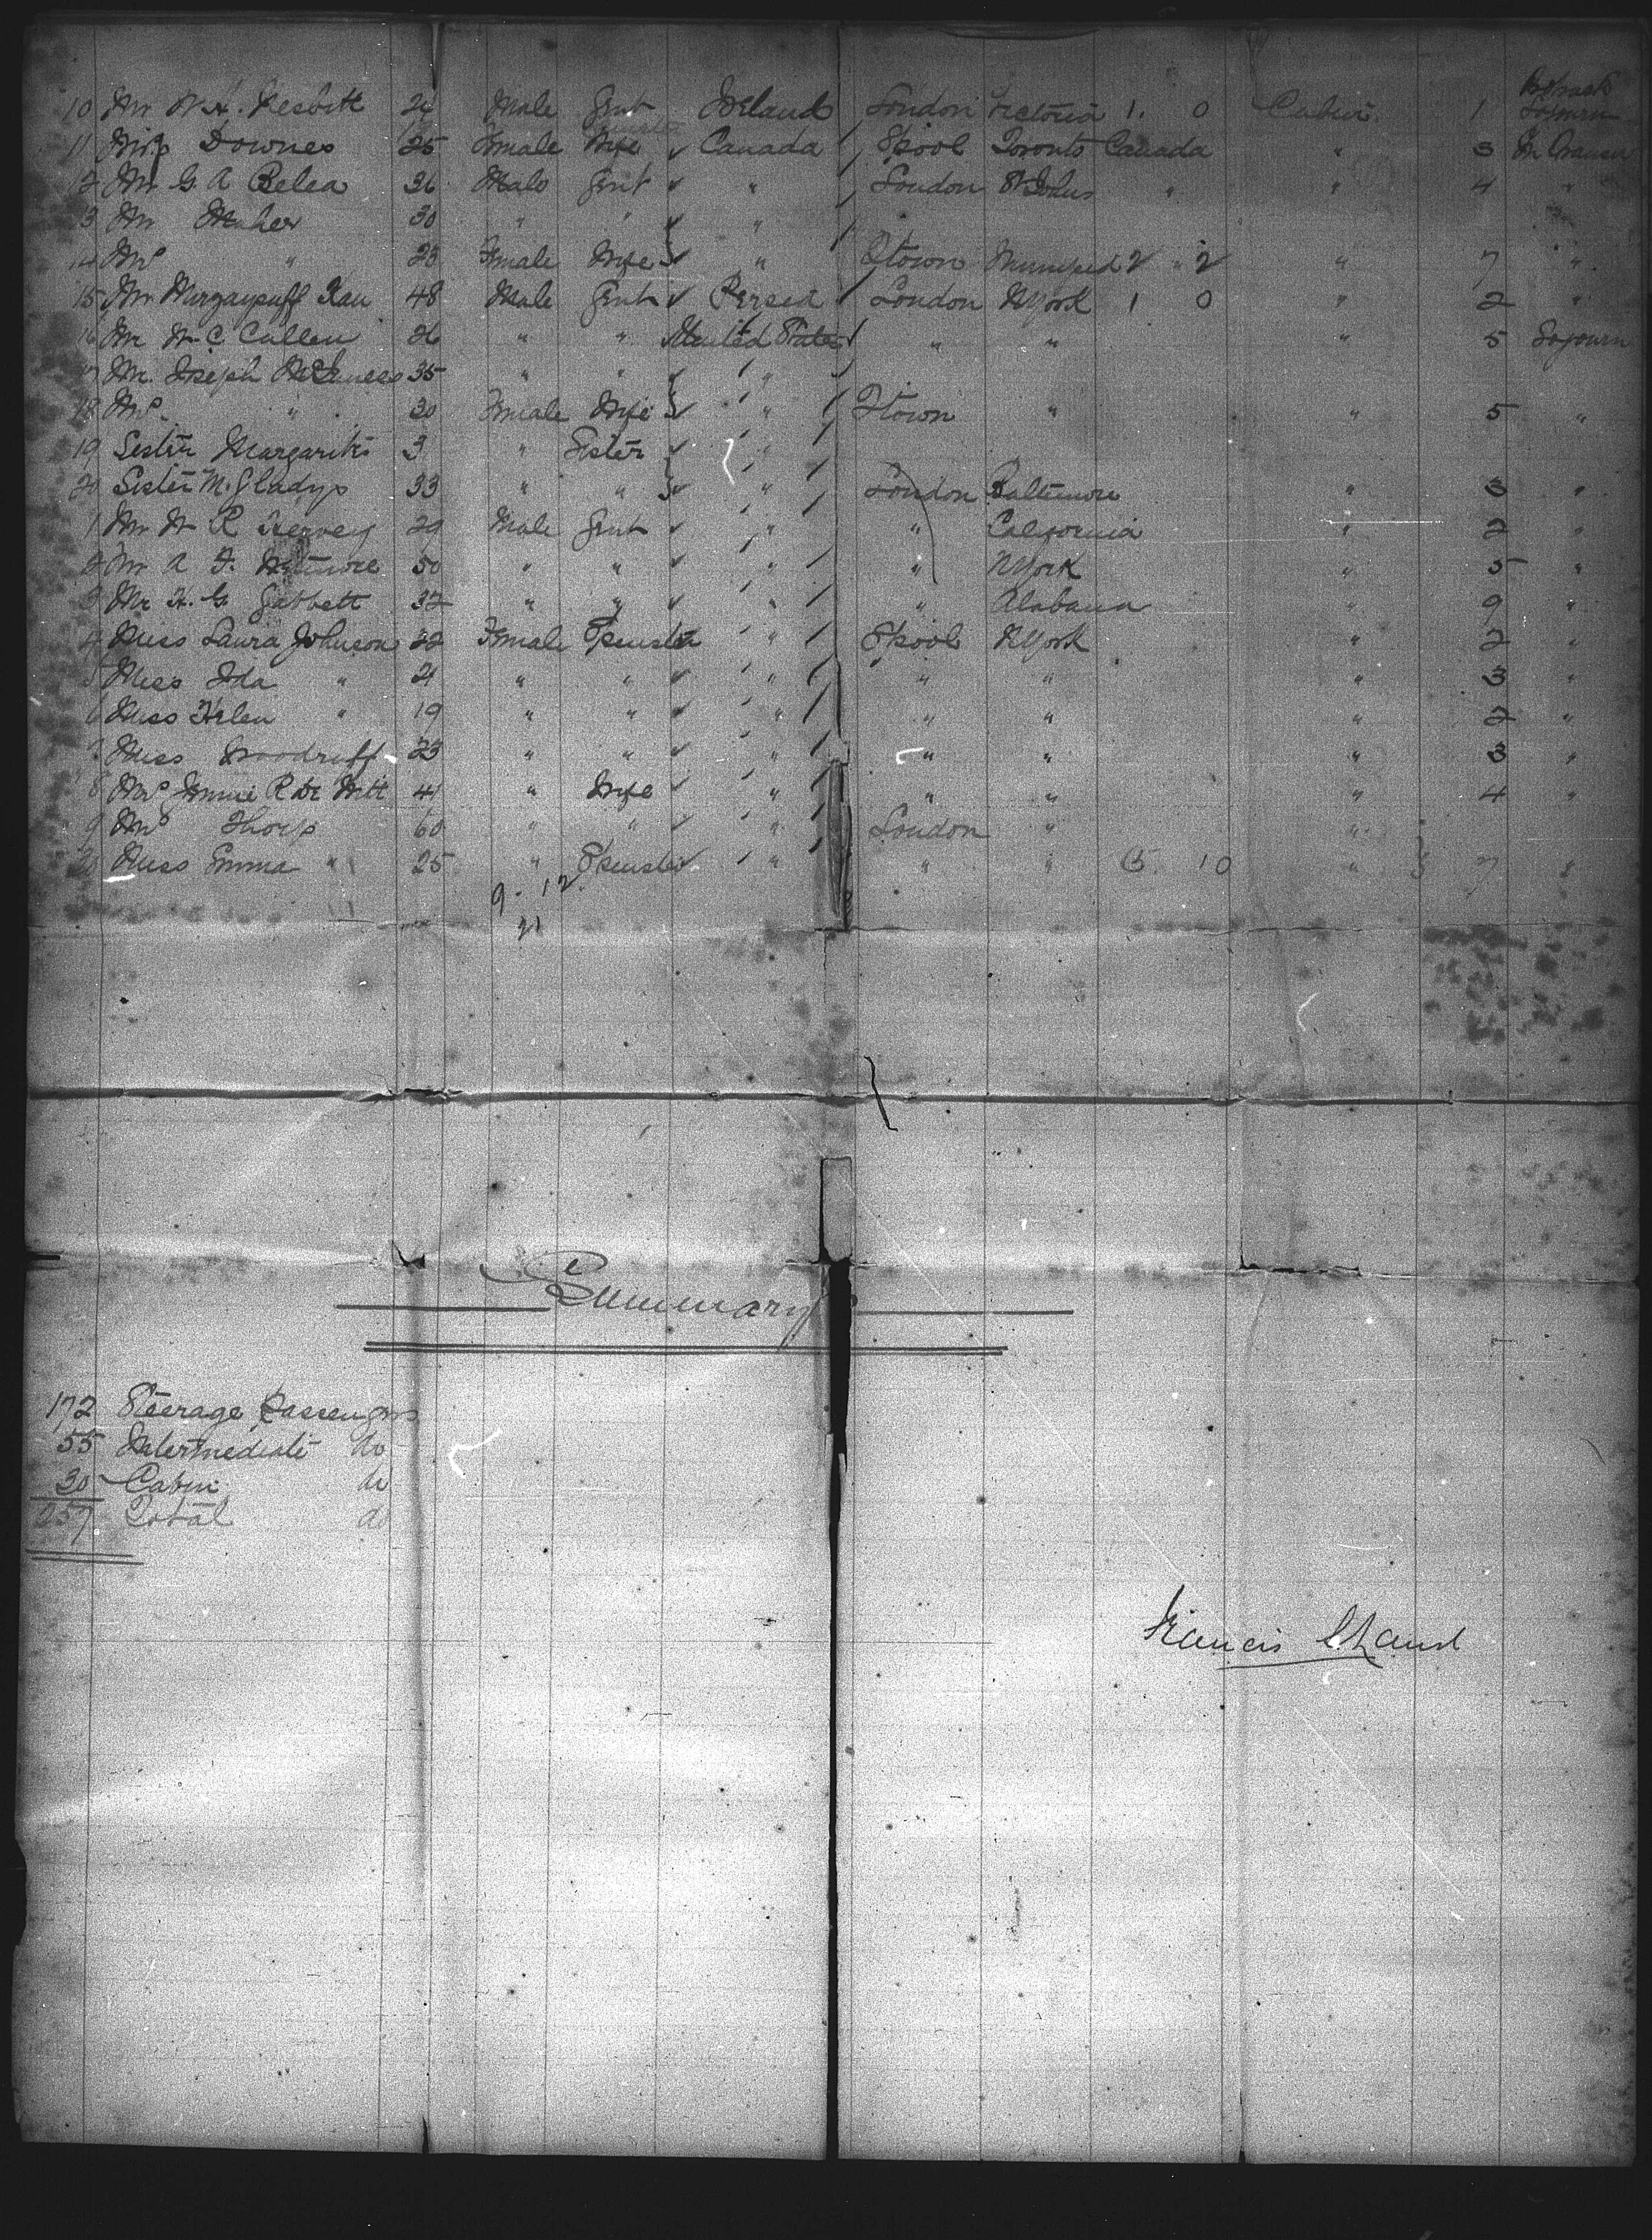 10 Mr W.H. Nesbitt 24 Male Gent Ireland London Victoria 1. 0 Cabin 1 Sojourn
11 Miss Downes 25 Female Wife Canada L'pool Toronto Canada " 3 In Transit
12 Mr G A Belea 36 Male Gent " London St Johns " " 4 "
3 Mr Maher 30 " " "
14 Mrs " 28 Female Wife " Qtown Winnipeg 2 " 2 " 7 "
15 Mr Kau 48 Male Gent Persia London NYork 1 0 " 2 "
16 Mr W. C. Cullen 26 " " United States " " " 5 Sojourn
17 Mr. Joseph 35 " " "
18 Mrs. " 30 Female Wife " Qtown " " 5 "
19 Sister 3 " Sister "
20 Sister M. Gladys 33 " " " London Baltimore " 3 "
1 Mr W R Hervey 29 Male Gent " " California " 2 "
2 Mr A F. 50 " " " " NYork " 5 "
3 Mr H. G Gabbett 32 " " " " Alabama " 9 "
4 Miss Laura Johnson 22 Female Spinster " L'pool NYork " 2 "
5 Miss Ida " 21 " " " " " " 3 "
6 Miss Helen " 19 " " " " " " 2 "
7 Miss Woodruff 23 " " " " " " 3 "
8 Mrs Jennie R De Witt 41 " Wife " " " " 4 "
9 Mrs Thorp 60 " " " London " "
30 Miss Emma " 25 " Spinster " " " 15 10 " 7 "
9. 12
21
Summary
172 Steerage Passengers
55 Intermediate do
30 Cabin do
257 Total do
Francis